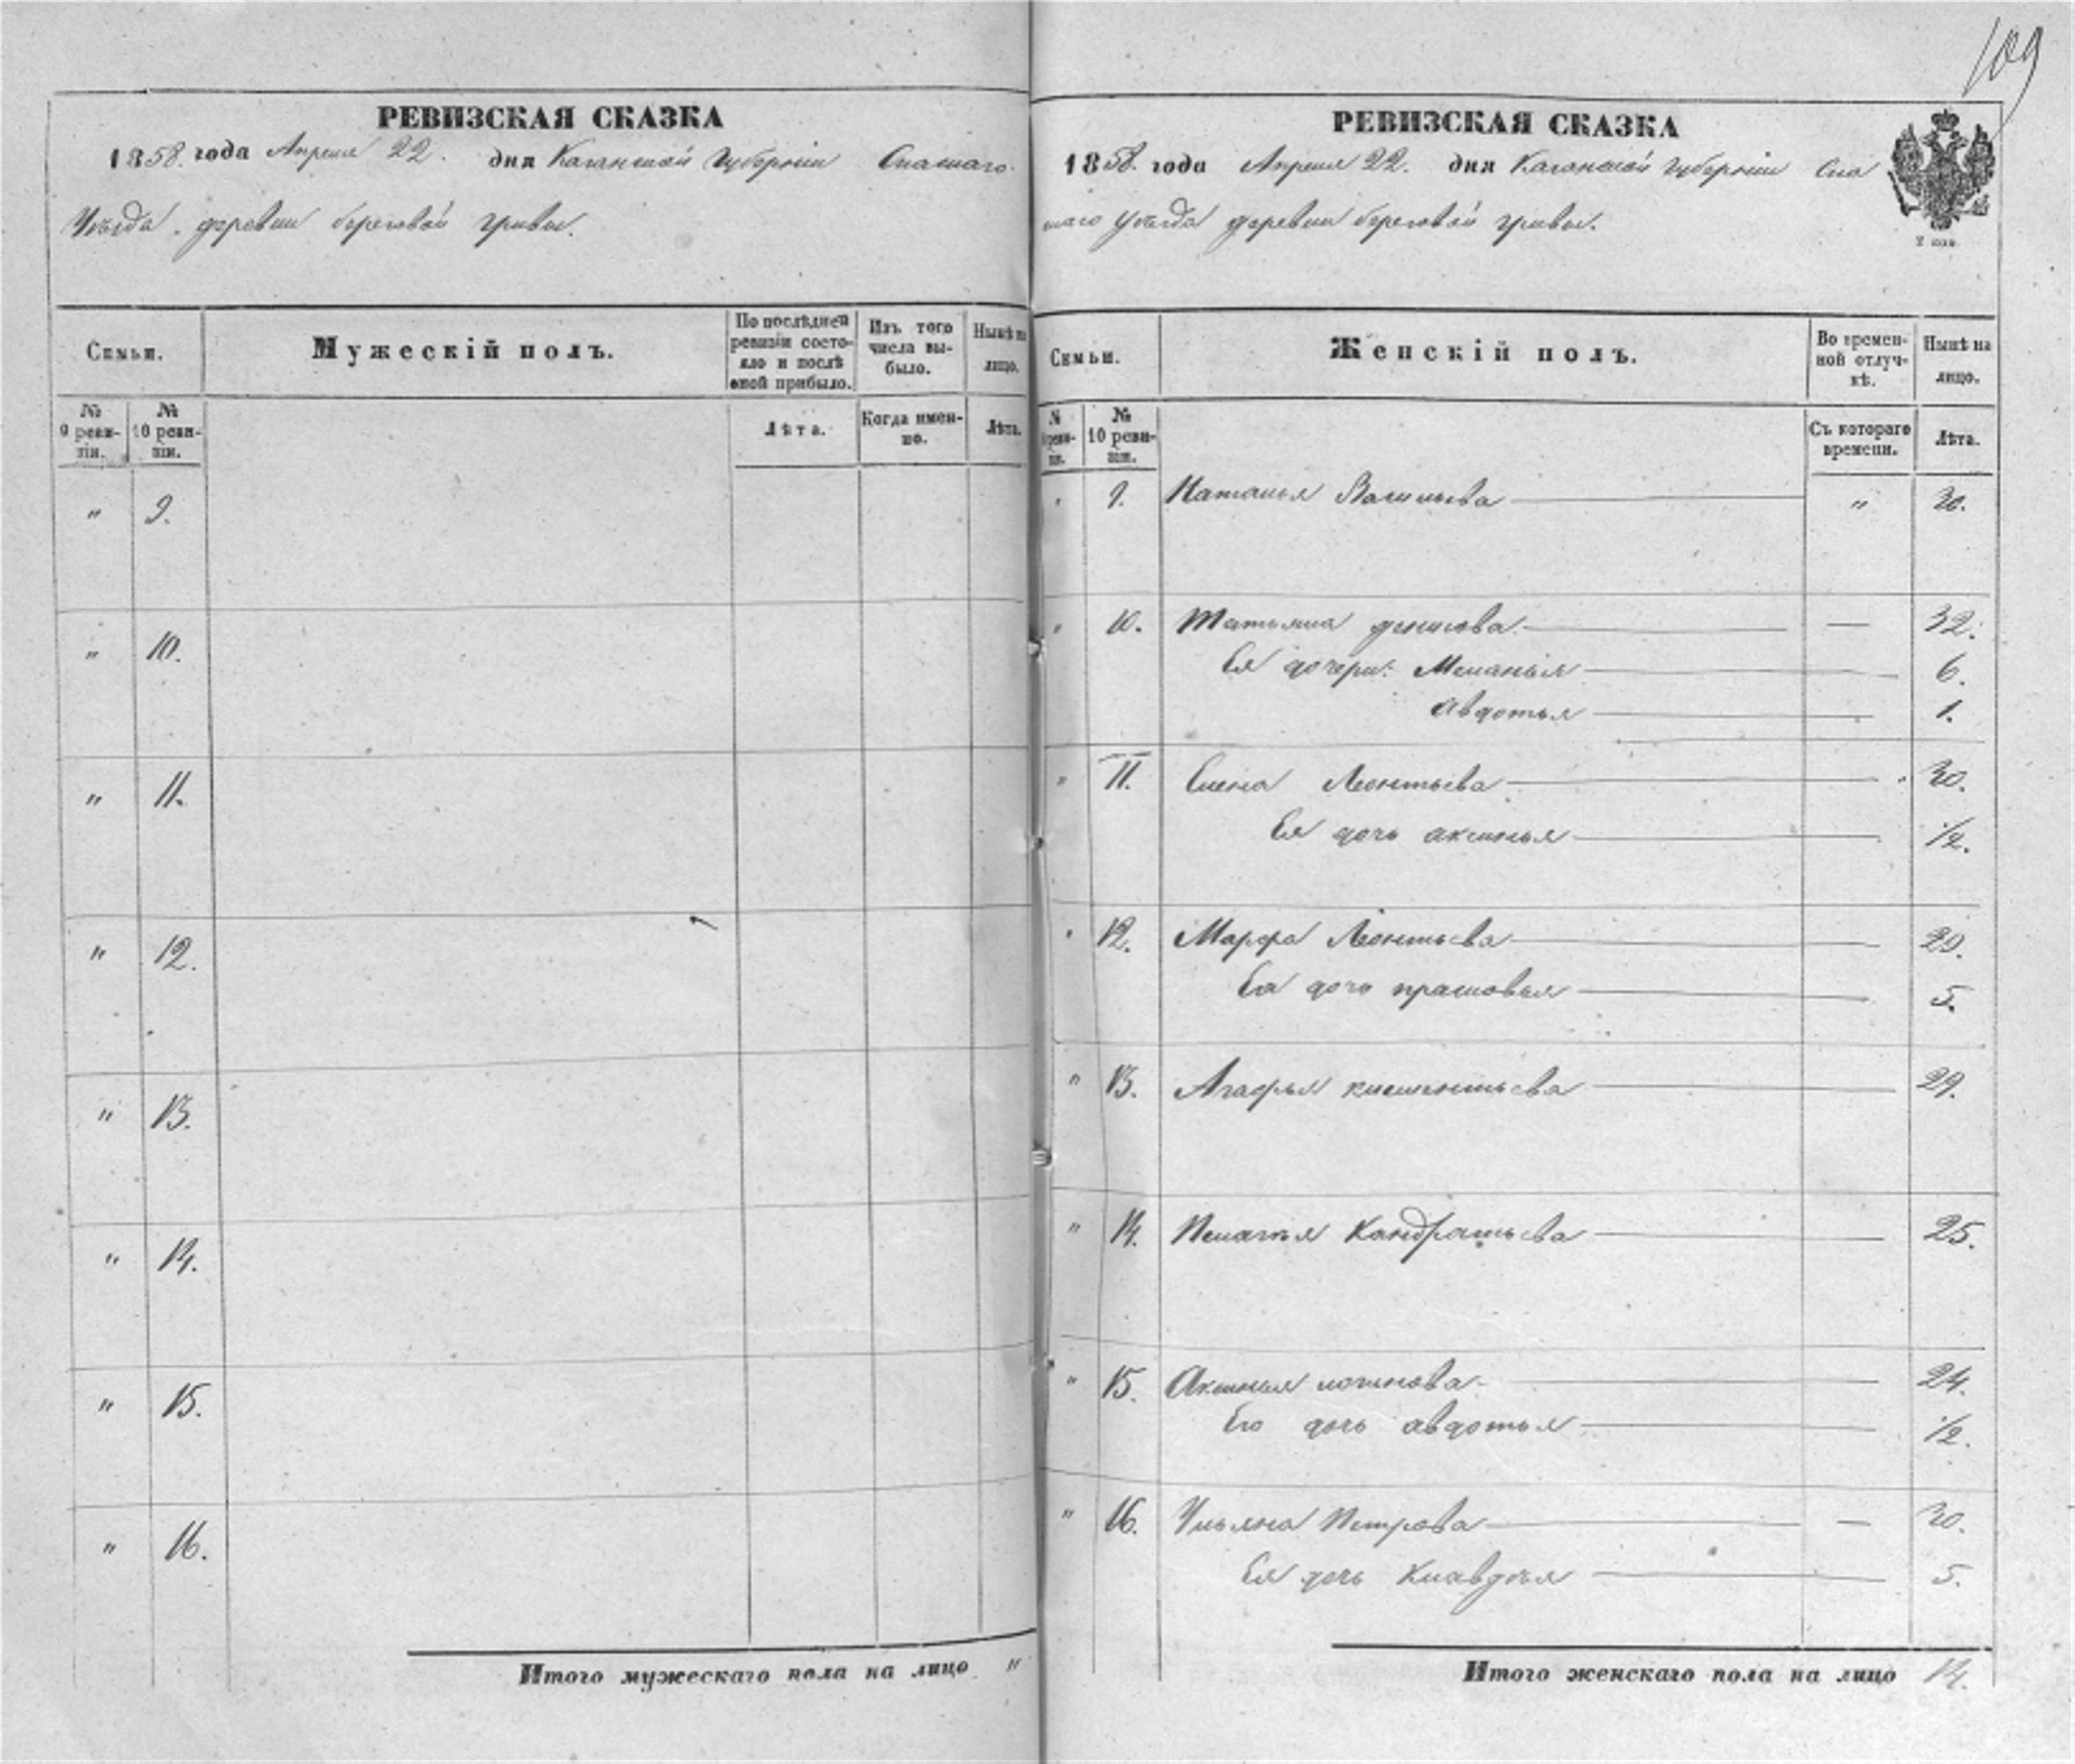 109
РЕВИЗСКАЯ СКАЗКА
1858. года Апреля 22. дня Казанской Губерніи Спаскаго
Уѣзда. деревни береговой гривы.
Семьи.
Мужескій полъ.
По послѣдней ревизіи состояло и послѣ оной прибыло.
Изъ того числа выбыло.
Нынѣ на лицо.
№ 9 ревизіи.
№ 10 ревизіи.
Лѣта.
Когда именно.
Лѣта.
" 9.
" 10.
" 11.
" 12.
" 13.
" 14.
" 15.
" 16.
Итого мужескаго пола на лицо "
РЕВИЗСКАЯ СКАЗКА
1858. года Апреля 22. дня Казанской Губерніи Спа
скаго Уѣзда деревни береговой гривы.
2 коп.
Семьи.
Женскій полъ.
Во временной отлучкѣ.
Нынѣ на лицо.
№ 9 ревизіи.
№ 10 ревизіи.
Съ котораго времени.
Лѣта.
" 9. Наталья Васильева " 30.
" 10. Татьяна денисова — 32.
Ея дочери: Меланья 6.
авдотья 1.
" 11. Елена Леонтьева 30.
Ея дочь аксинья 1/2.
" 12. Марфа Леонтьева 29.
Ея дочь прасковья 5.
" 13. Агафья 29.
" 14. Пелагея Кандратьева 25.
" 15. Аксинья логинова 24.
Его дочь авдотья 1/2.
" 16. Ульяна Петрова — 30.
Ея дочь Клавдья 5.
Итого женскаго пола на лицо 14.